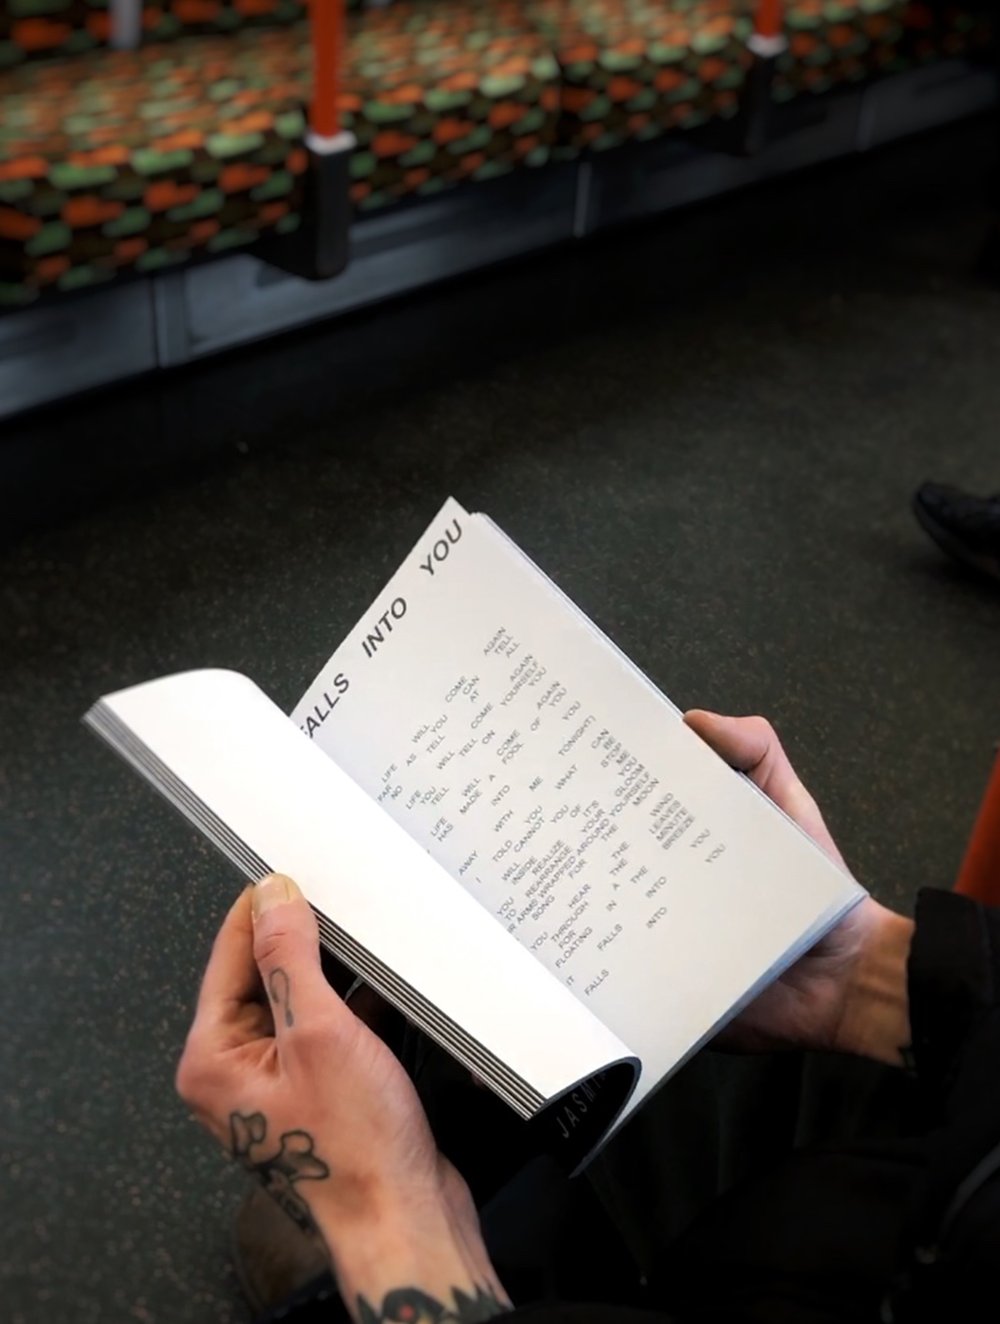 FALLS INTO YOU
LIFE WILL COME AGAIN
FAR AS YOU CAN TELL
NO TELL AT ALL
LIFE WILL COME AGAIN
YOU TELL YOURSELF
TELL ON YOU
LIFE WILL COME AGAIN
HAS MADE A FOOL OF YOU
INTO YOU
AWAY WITH ME TONIGHT)
I TOLD YOU WHAT CAN
CANNOT BE
WILL YOU STOP
INSIDE OF ME
YOU REALIZE IT'S YOU
TO REARRANGE YOUR GLOOM
ARMS WRAPPED AROUND YOURSELF
SONG FOR THE MOON
YOU HEAR THE WIND
THROUGH THE LEAVES
FOR A MINUTE
FLOATING IN THE BREEZE
IT FALLS INTO YOU
FALLS INTO YOU